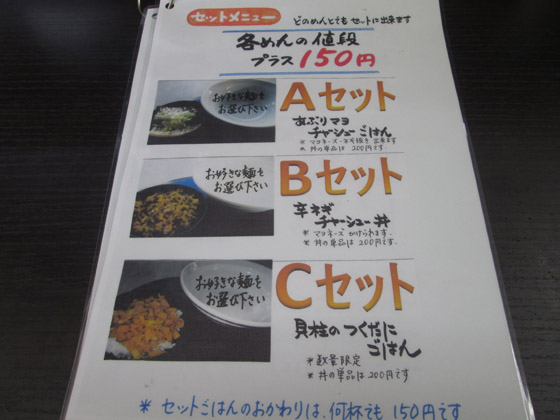 セットメニュー
どのめんとでも セットに出来ます
各めんの値段
プラス150円
お好きな麺を
お選び下さい
Aセット
あぶりマヨ
チャーシューごはん
※マヨネーズ・ネギ抜き出来ます
※丼の単品は200円です
お好きな麺を
お選び下さい
Bセット
辛ネギ
チャーシュー丼
※マヨネーズかけられます。
※丼の単品は200円です。
お好きな麺を
お選び下さい
Cセット
貝柱のつくだに
ごはん
※数量限定
※丼の単品は200円です
※セットごはんのおかわりは、何杯でも150円です